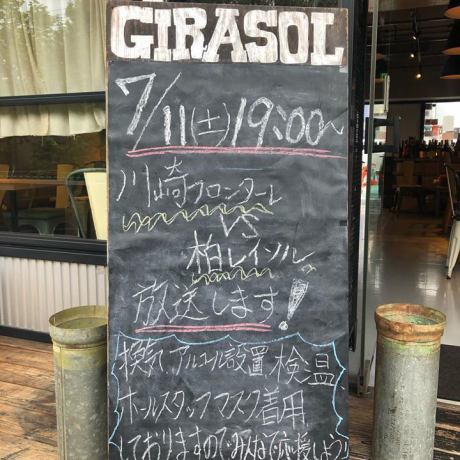 GIRASOL
7/11(土)19:00~
川崎フロンターレ
VS
柏レイソル
放送します!
換気、アルコール設置、検温、
ホールスタッフマスク着用
しておりますので、みんなで応援しよう!